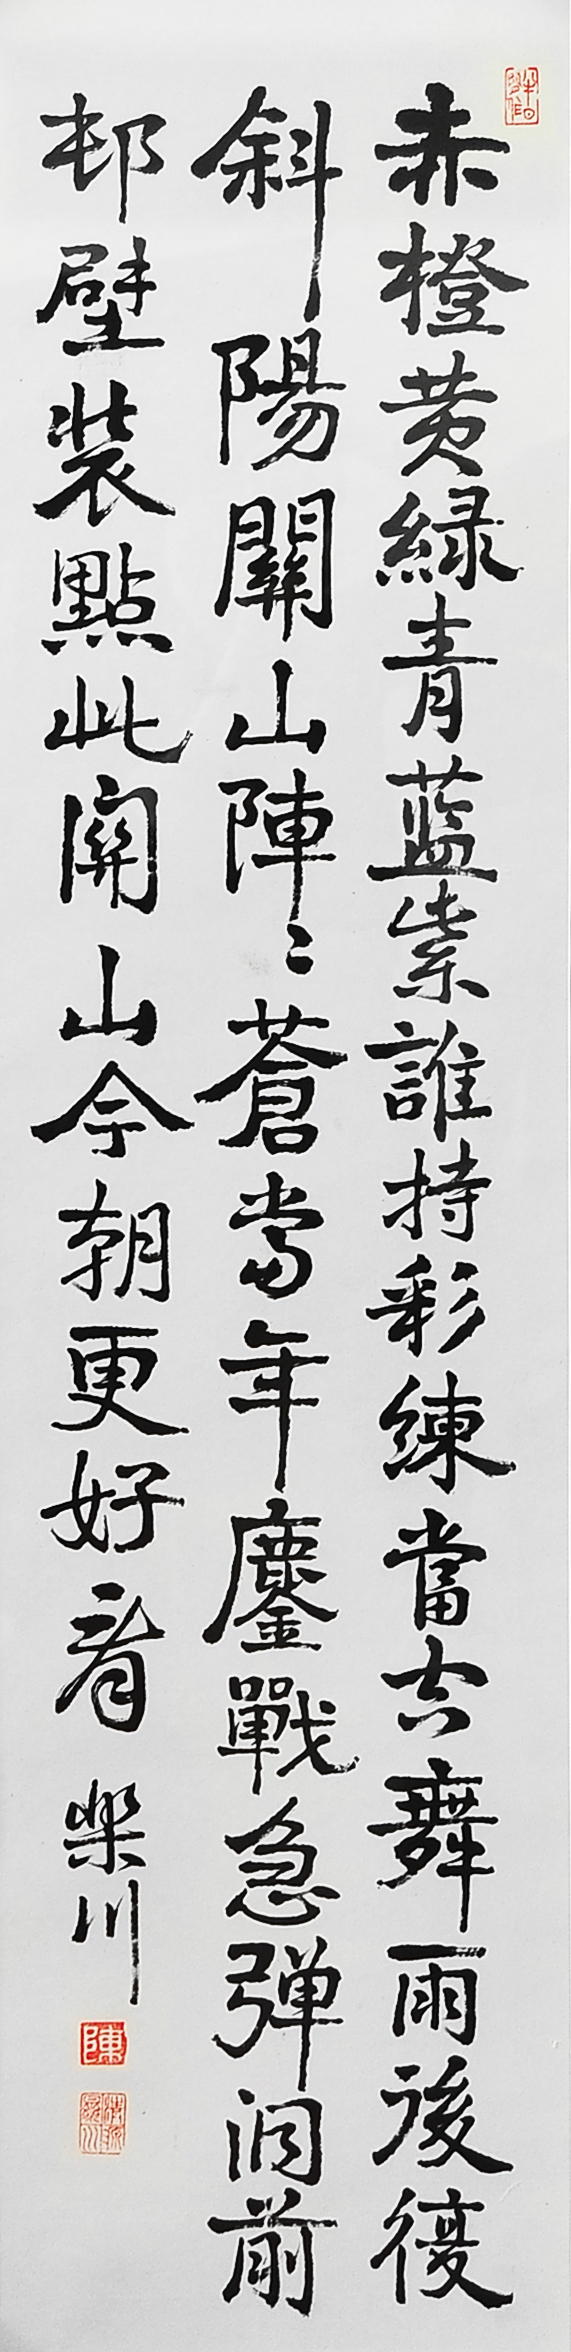 赤橙黄緑青藍紫誰持彩練當空舞雨後復
斜陽關山陣〻蒼當年鏖戰急弹洞前
邨壁装點此關山今朝更好看
樂川
陳